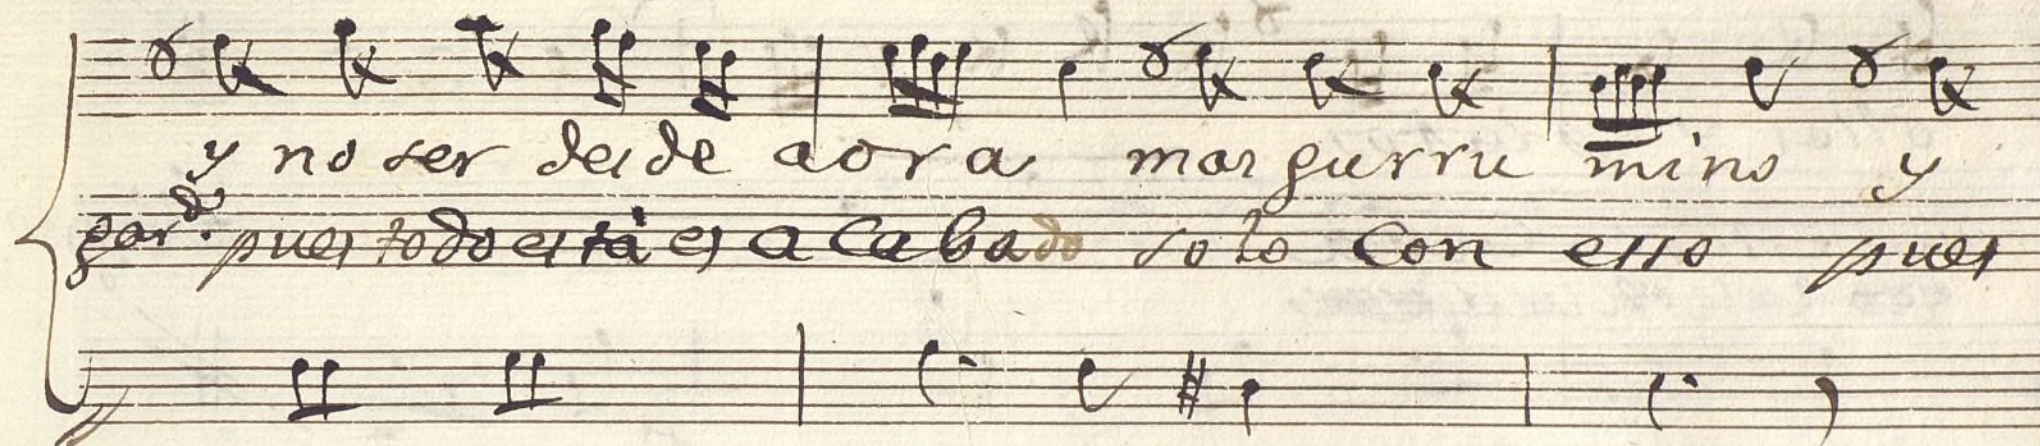 y no ser desde aora mas gurru mino y
gar.d. pues todo está es a ca ba do solo con esso pues